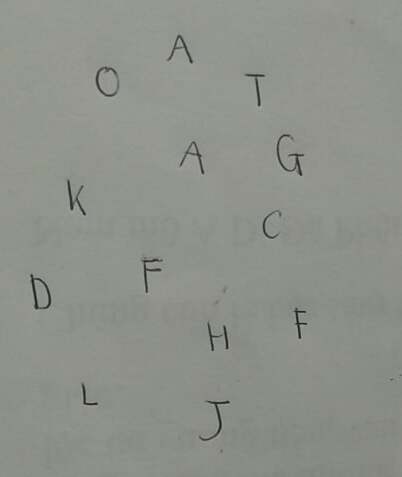 A
O T
A G
K
C
D F
H F
L J